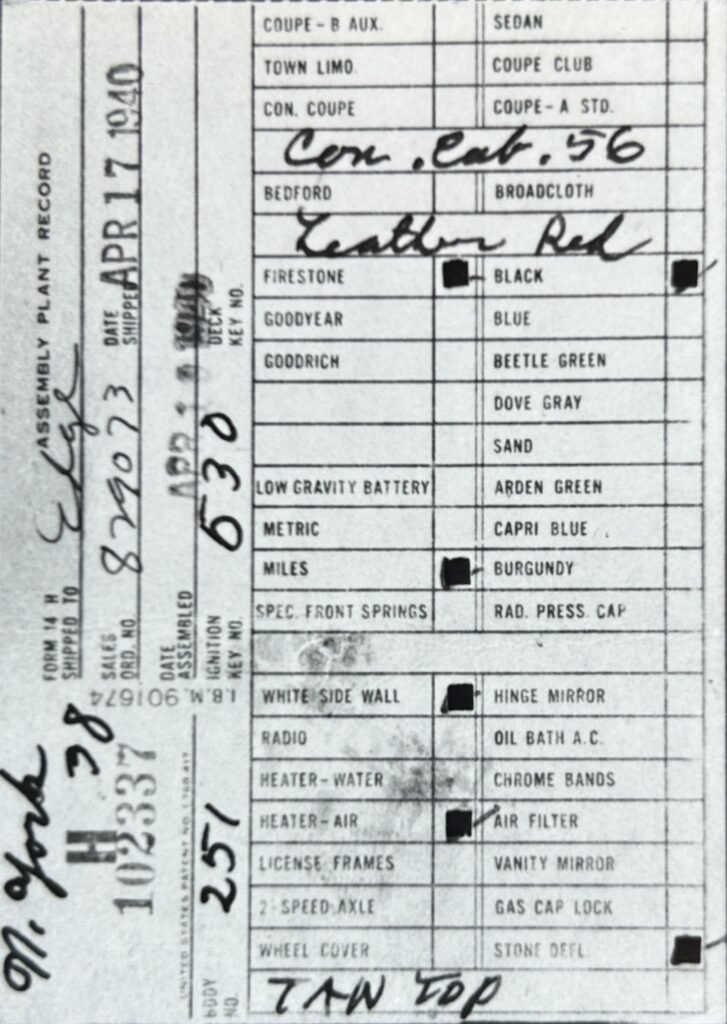 COUPE - B AUX. SEDAN
TOWN LIMO. COUPE CLUB
CON. COUPE COUPE - A STD.
Con. Cab. 56
BEDFORD BROADCLOTH
Leather Red
FIRESTONE BLACK
GOODYEAR BLUE
GOODRICH BEETLE GREEN
DOVE GRAY
SAND
LOW GRAVITY BATTERY ARDEN GREEN
METRIC CAPRI BLUE
MILES BURGUNDY
SPEC. FRONT SPRINGS RAD. PRESS. CAP
WHITE SIDE WALL HINGE MIRROR
RADIO OIL BATH A.C.
HEATER - WATER CHROME BANDS
HEATER - AIR AIR FILTER
LICENSE FRAMES VANITY MIRROR
2 - SPEED AXLE GAS CAP LOCK
WHEEL COVER STONE DEFL.
TAN TOP
N. York
38
H
102337
FORM 14 H ASSEMBLY PLANT RECORD
SHIPPED TO Edge
SALES ORD. NO. 829073 DATE SHIPPED APR 17 1940
DATE ASSEMBLED
I.B.M. 901674
BODY NO. 251 IGNITION KEY NO. 630 DECK KEY NO.